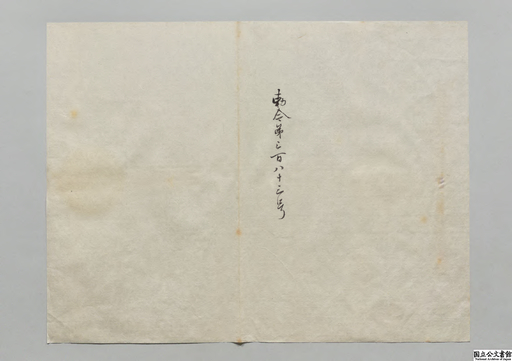 勅令第三百八十三号
国立公文書館
National Archives of Japan